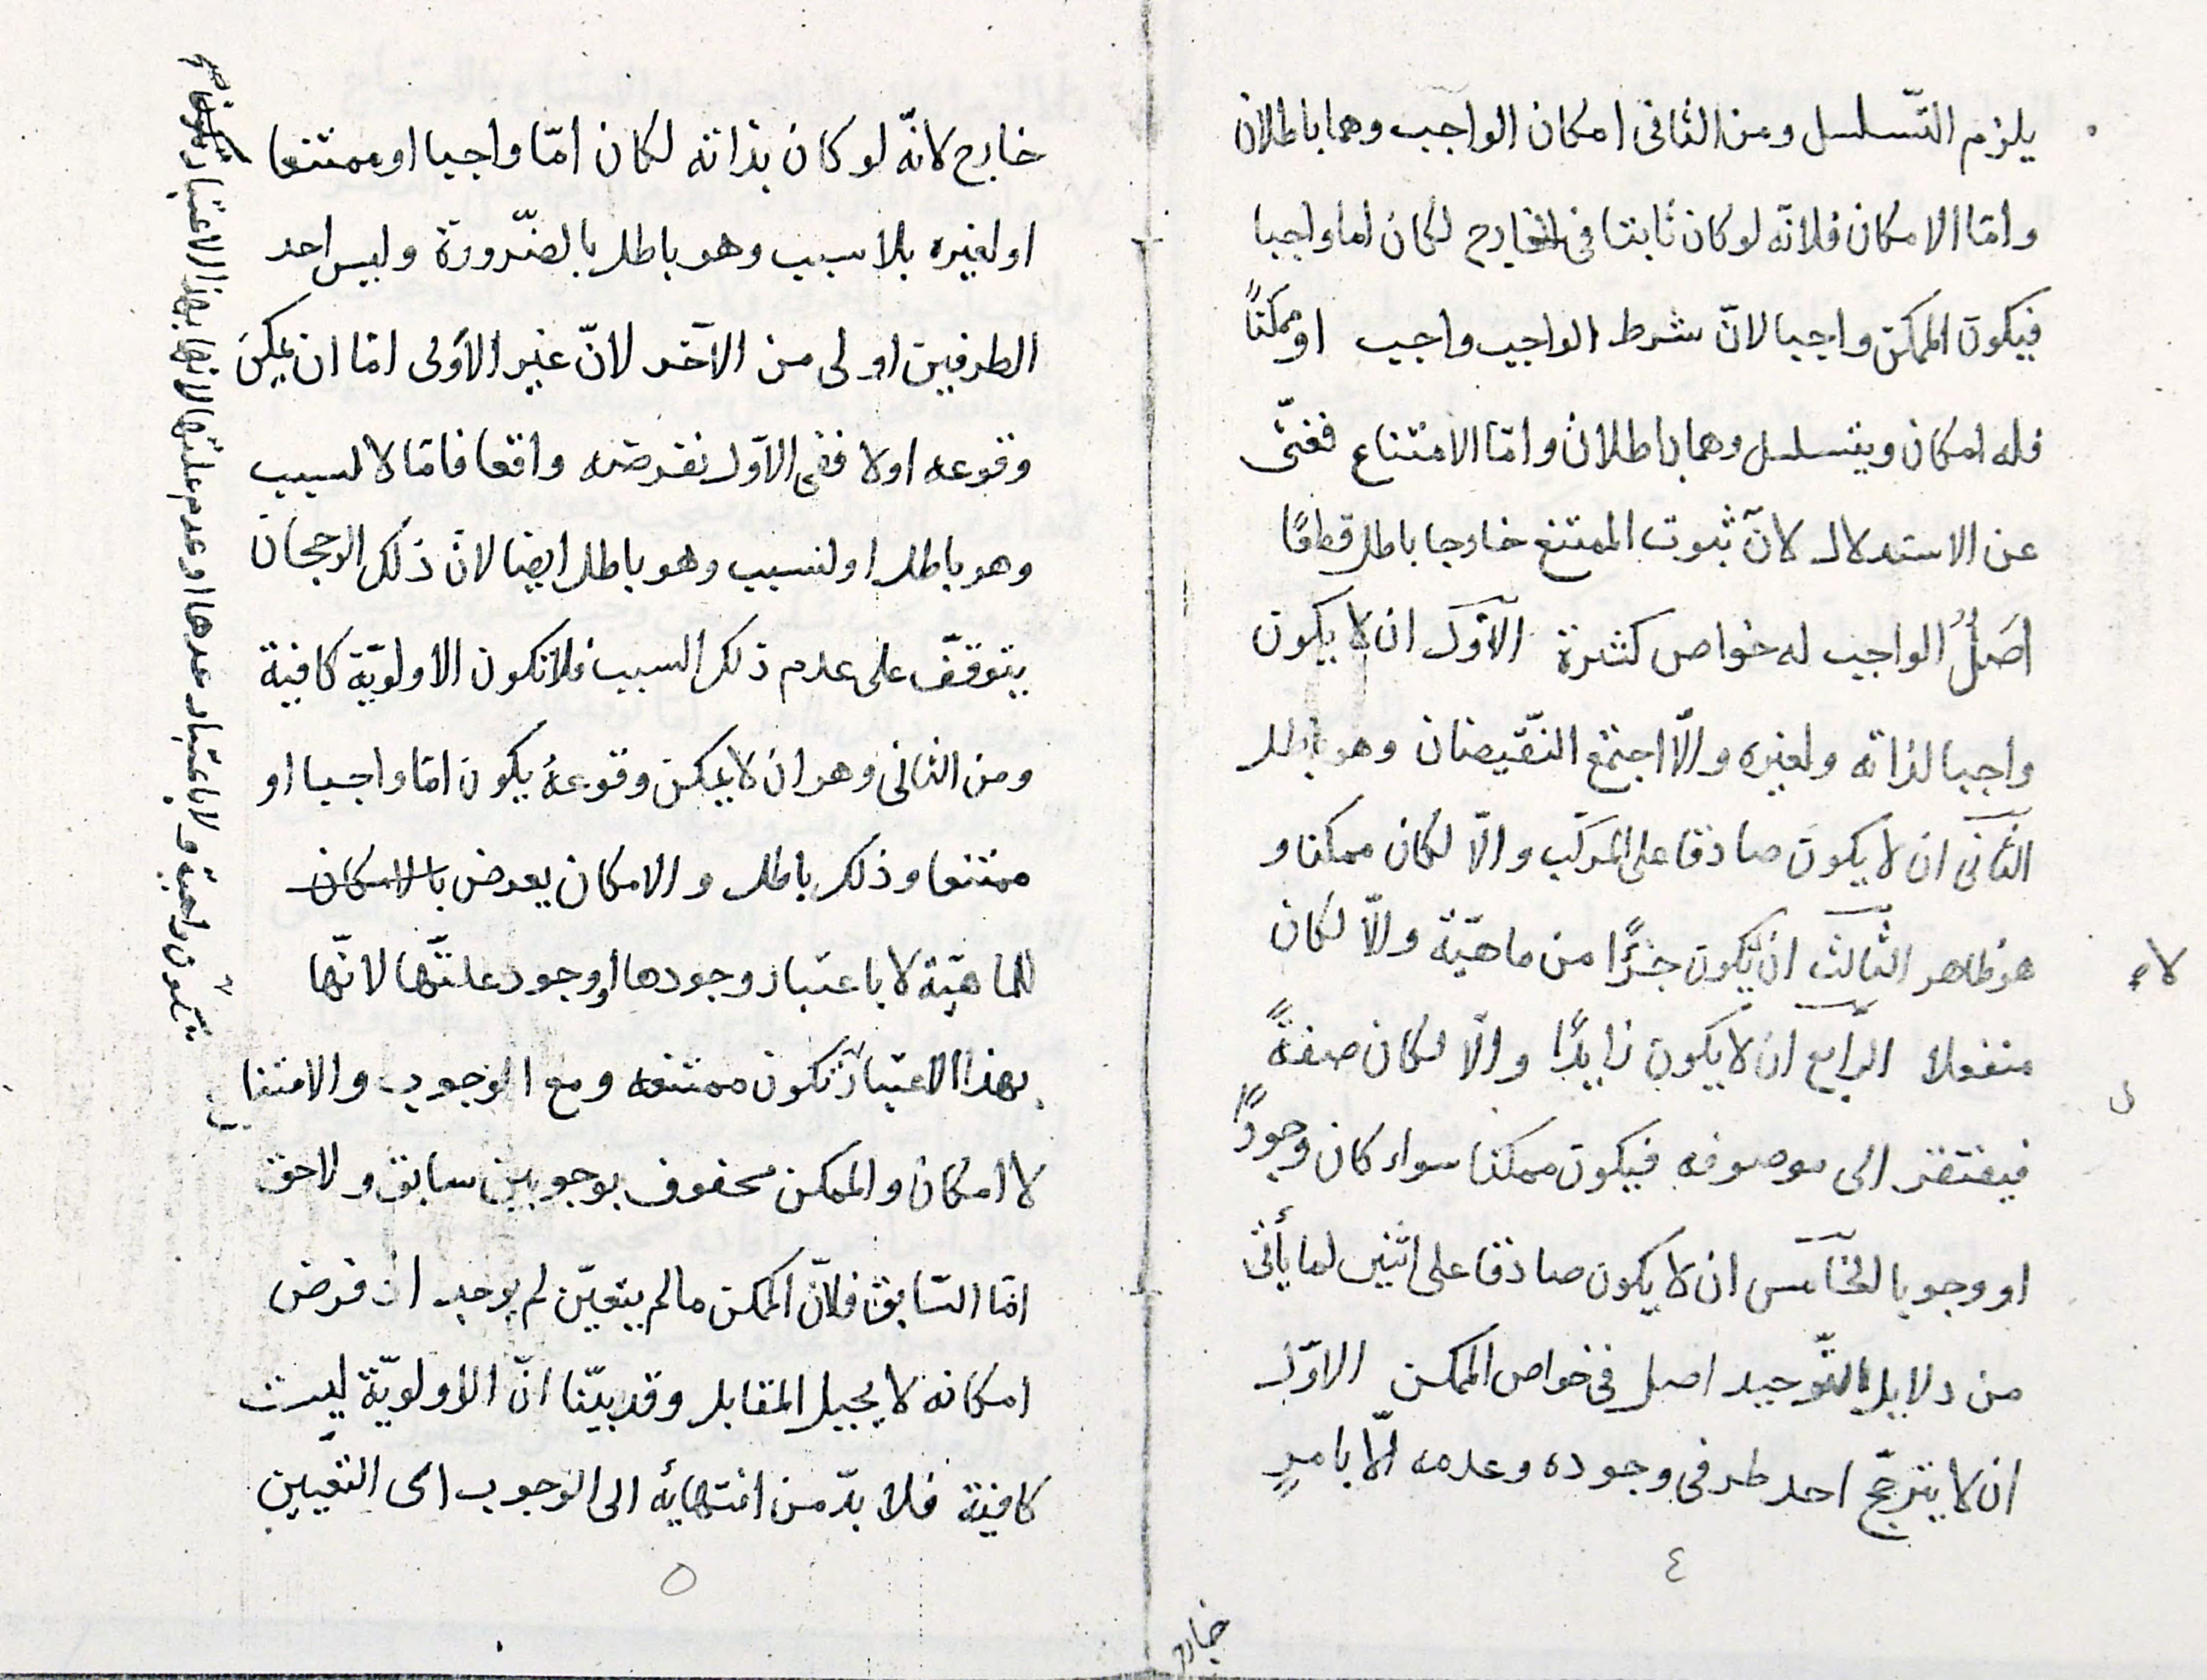 يلزم التّسلسل ومن الثانى امكان الواجب وهما باطلان
وامّا الامكان فلانّه لو كان ثابتا فى الخارج لكان اما واجبا
فيكون الممكن واجبا لانّ شرط الواجب واجب او ممكنًا
فله امكان ويتسلسل وهما باطلان وامّا الامتناع فغنىّ
عن الاستدلال لانّ ثبوت الممتنع خارجا باطل قطعًا
اصَلٌ الواجب له خواص كثيرة الاوّل ان لا يكون
واجبا لذاته ولغيره والّا اجتمع النّقيضان وهو باطل
الثانى ان لا يكون صادقا على المركّب والّا لكان ممكنا و
هو ظاهر الثالث ان يكون جزءًا من ماهيّة والّا لكان
لا
منفعلا الرابع ان لا يكون زايدًا والّا لكان صفةً
فيفتقر الى موصوفه فيكون ممكنا سواء كان وجودًا
او وجوبا الخامس ان لا يكون صادقا على اثنين لما يأتى
من دلايل التّوحيد اصل فى خواص الممكن الاوّل
ان لا يترجّح احد طرفى وجوده وعدمه الّا بامرٍ
٤
خارج
خارج لانّه لو كان بذاته لكان امّا واجبا او ممتنعا
او لغيره بلا سبب وهو باطل بالضّرورة وليس احد
الطرفين اولى من الآخر لانّ غير الاولى امّا ان يمكنَ
وقوعه اولا ففى الاوّل نفرضه واقعا فامّا لا لسبب
وهو باطل او لسبب وهو باطل ايضا لانّ ذلك الرجحان
يتوقّف على عدم ذلك السبب فلا تكون الاولويّة كافية
ومن الثانى وهو ان لا يمكن وقوعهُ يكون امّا واجبا او
ممتنعا وذلك باطل والامكان يعرض بالامكان
للماهيّة لا باعتبار وجودها او وجود علّتها لانّها
بهذا الاعتبار تكون ممتنعه ومع الوجوب والامتناع
لا امكان والممكن محفوف بوجوبين سابق ولاحق
امّا السّابق فلانّ الممكن ما لم يتعيّن لم يوجد اذ فرض
امكانه لا يحيل المقابل وقد بيّنا انّ الاولويّة ليست
كافية فلا بدّ من انتهائه الى الوجوب اى التعيين
٥
تكون واجبة ولا باعتبار عدمها او عدم علتها لانها بهذا الاعتبار تكون